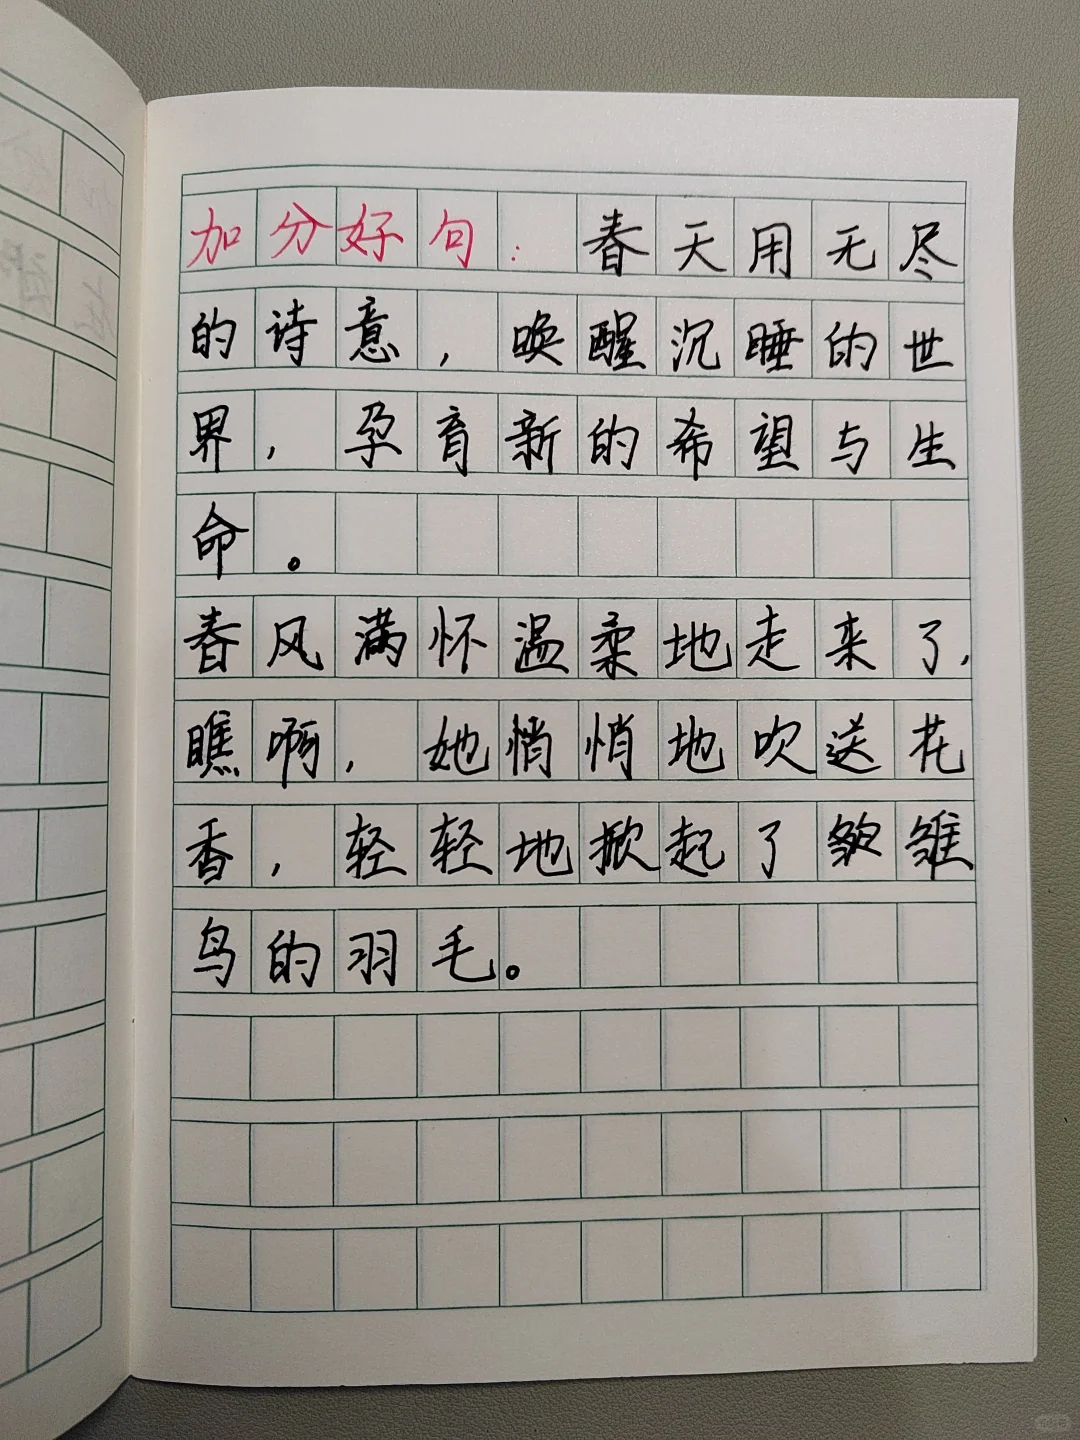 加分好句： 春天用无尽
的诗意，唤醒沉睡的世
界，孕育新的希望与生
命。
春风满怀温柔地走来了，
瞧啊，她悄悄地吹送花
香，轻轻地掀起了皱雏
鸟的羽毛。